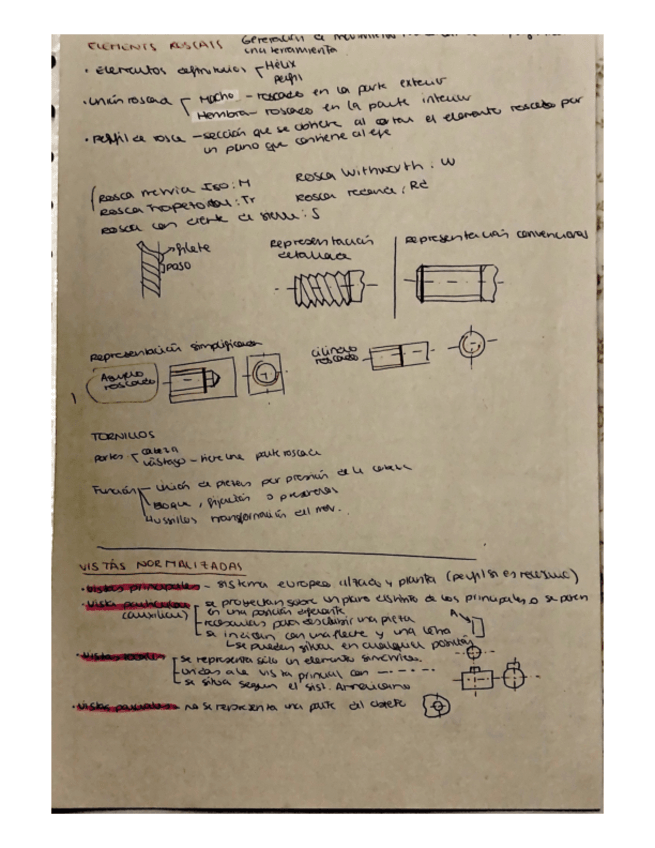 ELEMENTS ROSCATS Generación de movimiento
una herramienta.
· elementos definitorios Hélix
perfil
· unión roscada Macho - roscado en la parte exterior
Hembra - roscado en la parte interior
· Perfil de rosca - sección que se obtiene al cortar el elemento roscado por
un plano que contiene al eje
Rosca métrica ISO: M Rosca Withworth: W
Rosca Trapezoidal: Tr Rosca redonda: Rd
Rosca con diente de sierra: S
filete
paso
Representación
detallada
Representación convencional
Representación simplificada
Agujero
roscado
cilindro
roscado
TORNILLOS
partes cabeza
vástago - tiene una parte roscada
Función - unión de piezas por presión de la cabeza
Bloque, fijación o
Husillos transformación del mov.
VISTAS NORMALIZADAS
· Vistas principales - sistema europeo alzado y planta (perfil si es necesario)
· Vista particular
(auxiliar)
se proyectan sobre un plano distinto de los principales o se ponen
en una posición diferente
- necesarias para describir una pieza
se indican con una flecha y una letra
se pueden situar en cualquier posición
A
· Vistas locales
se representa sólo un elemento simétrico.
- unidas a la vista principal con - · - · - · -
se situa segun el sist. Americano
· Vistas parciales - no se representa una parte del objeto